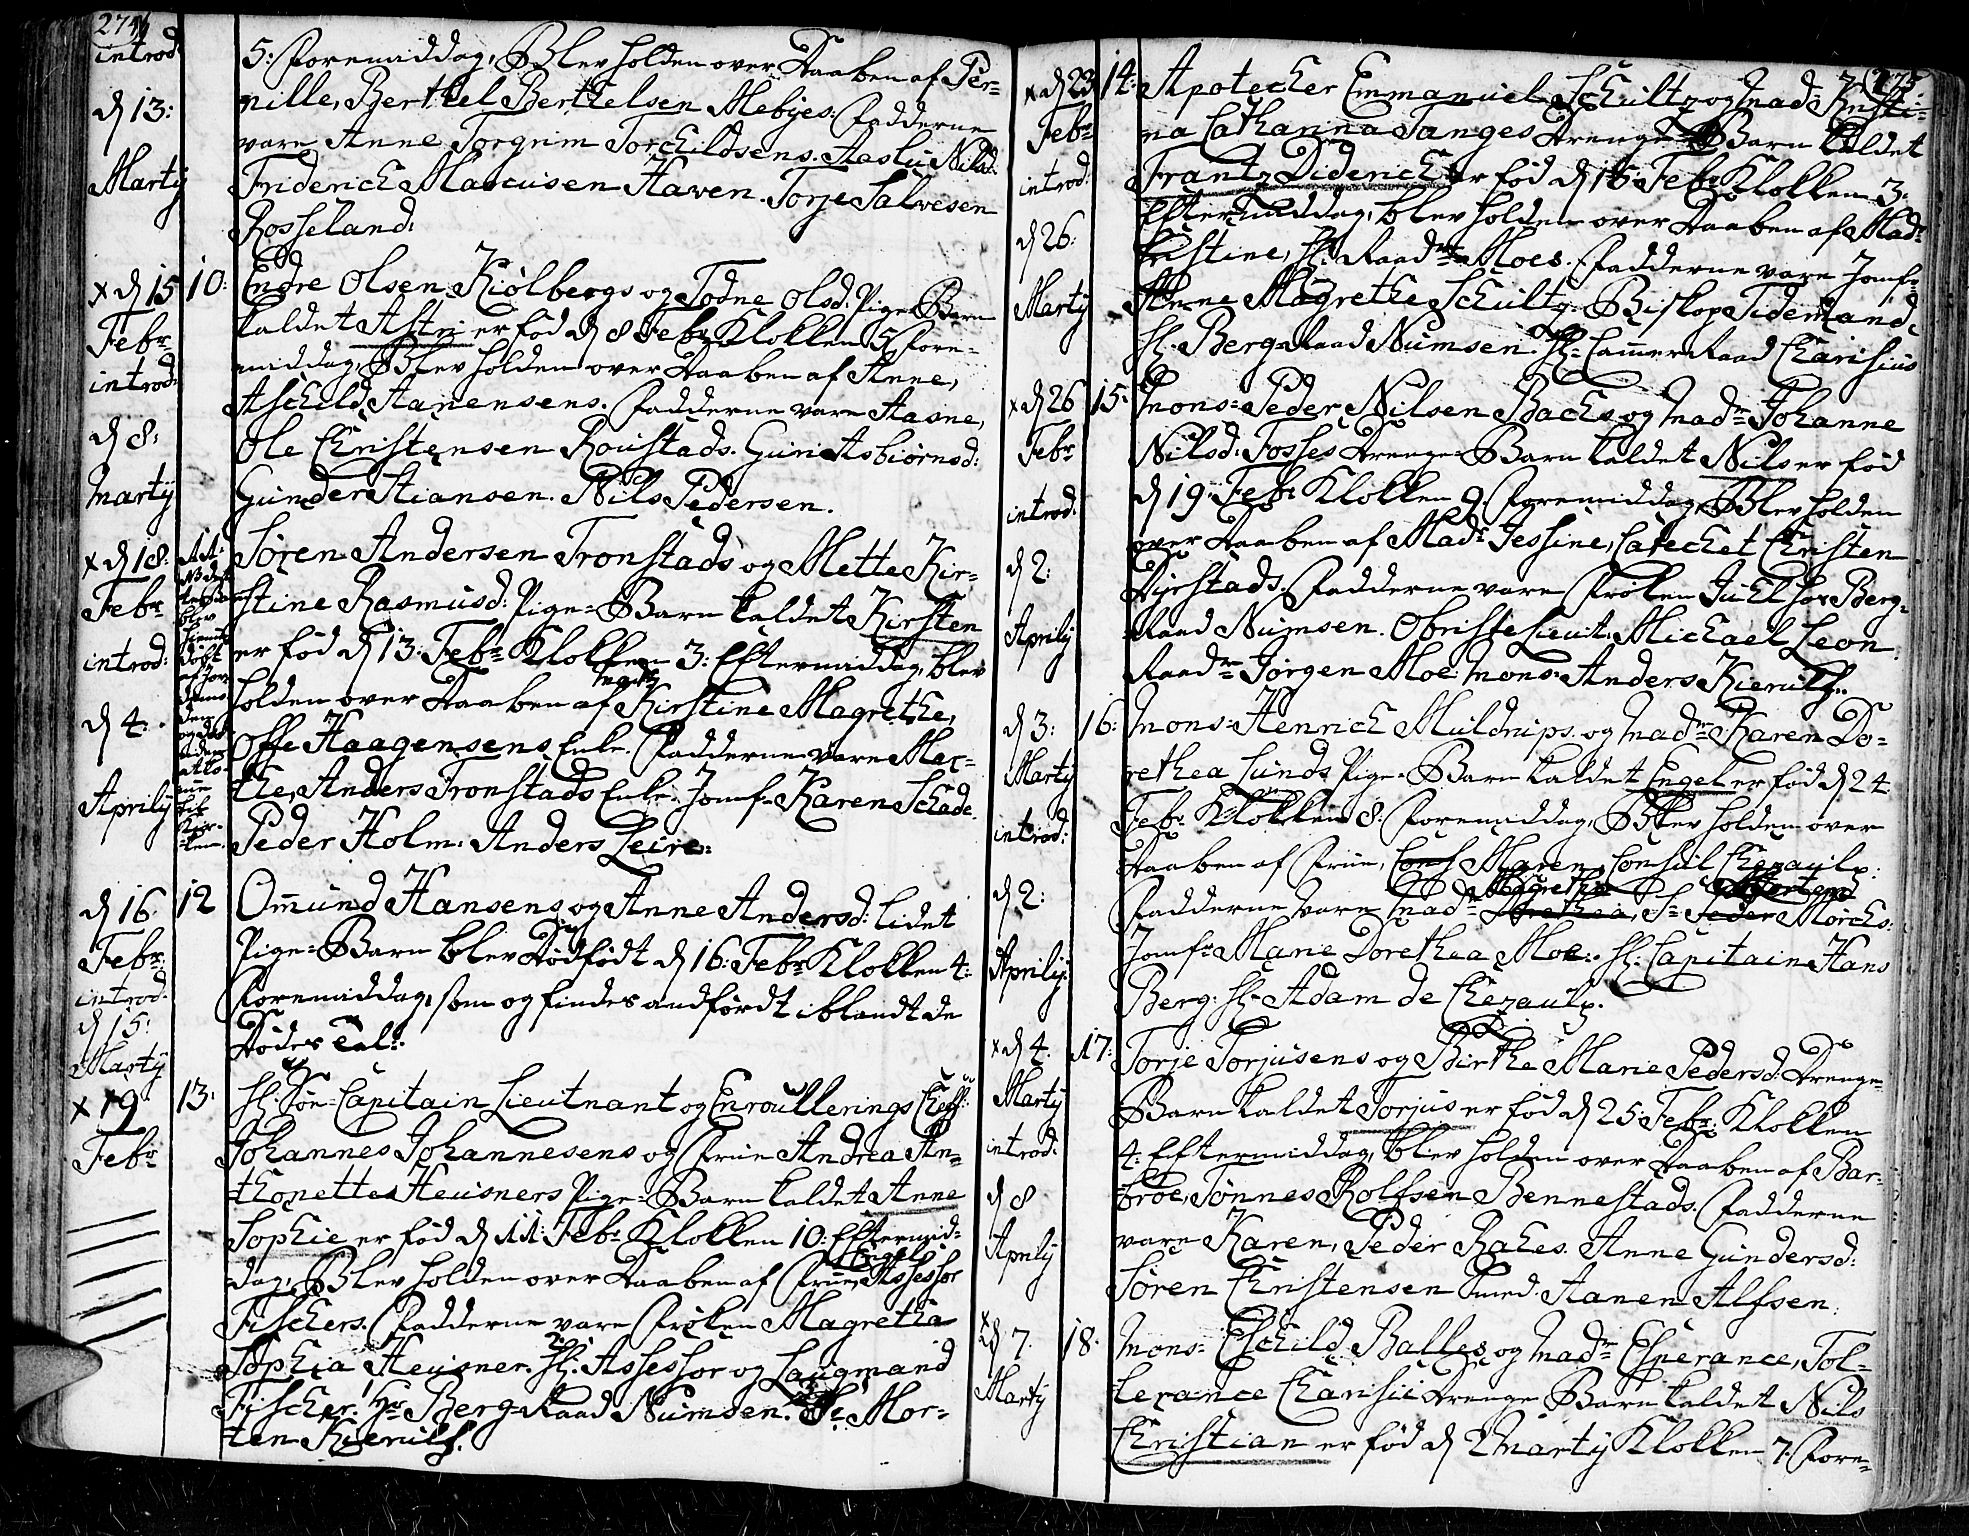 274
introd:
d 13:
Martij
5: Foremiddag, Blev holden over Daaben af Per-
nille, Berthel Berthelsen Mebÿes. Fadderne
vare Anne Torgrim Torchildsens. Aaslu Nilsd:
Friderich Marcusen Haven. Torje Salvesen
Rosseland.
x d 15
Febr
introd:
d 8:
Martij
10:
Endre Olsen Kiölbergs og Todne Olsd: Pige-Barn
kaldet Astri er fød d 8 Febr Klokken 5 Fore-
middag, Blev holden over Daaben af Anne,
Aschild Aanensens. Fadderne vare Aasne,
Ole Christensen Roustads. Guri Asbiørnsd:
Gunder Stiansen. Nils Pedersen.
x d 18:
Febr
introd:
d 4.
Aprilij
11:
Søren Andersen Tronstads og Mette Kir-
stine Rasmusd: Pige-Barn kaldet Kirsten
er fød d 13: Febr Klokken 3: Eftermiddag, blev
holden over Daaben af Kirstine Magrethe,
Offe Haagensens Enke. Fadderne vare Mar-
the, Anders Tronstads Enke. Jomf: Karen Schade.
Peder Holm. Anders Leire.
d 16.
Febr
introd:
d 15:
Martij
12
Ommund Hansens og Anne Andersd: lidet
Pige-Barn blev Dødfødt d 16: Febr Klokken 4:
Foremiddag, som og findes andførdt iblandt de
Dødes Tal.
x 19
Febr
13.
Hr: Søe-Capitain Lieutnant og Enroullerings Cheff
Johannes Johannesens og Frue Andrea An-
thonette Heusners Pige-Barn kaldet Anne
Sophie er fød d 11: Febr Klokken 10: Eftermid-
dag, Blev holden over Daaben af Frue Engel Assessor
Fischers. Fadderne vare Frøken Magretha
Sophia Heusner. Hr: Assessor og Laugmand
Fischer. Hr Berg-Raad Numsen. Sr. Mor-
ten Kierulf.
275.
x d 23
Febr
introd:
d 26:
Martij
14:
Apotecher Emmanuel Schultz og Mad: Kristi-
na Catharina Tanges Drenge-Barn kaldet
Frantz Diderich er fød d 15 Febr Klokken 3:
Eftermiddag, blev holden over Daaben af Mad:
Kristine, Hr: Raadm Moes. Fadderne vare Jomf:
Anne Magrethe Schultz. Biskop Tidemand.
Hr. Berg-Raad Numsen. Hr: Cammer Raad Charisius
x d 26
Febr
introd:
d 2:
Aprilij
15:
Mons: Peder Nilsen Bachs og Mad: Johanne
Nilsd: Fosses Drenge-Barn kaldet Nils er fød
d 19 Febr: Klokken 9 Foremiddag, Blev holden
over Daaben af Mad: Jessine, Catechet Christen
Dyrstads. Fadderne vare Frøken Juel hos Berg-
Raad Numsen. Obriste Lieut: Michael Leon.
Raadm Jørgen Moe. Mons: Anders Kierulf.
d 3:
Martij
introd:
d 2:
Aprilij
16:
Mons: Henrich Muldrups og Mad: Karen Do-
rethea Lunds Pige-Barn kaldet Engel er fød d 24
Febr: Klokken 8: Foremiddag, Blev holden over
Daaben af Frue, Maren, Consul Chezaulx.
Fadderne vare Mad: Magrethe Mortens Mørchs:
Jomf: Marie Dorethea Moe. Hr: Capitain Hans
Berg. Hr: Adam de Chezaulx.
x d 4.
Martij
introd:
d 8
Aprilij
17:
Torje Torjusens og Birthe Marie Pedersd: Drenge-
Barn kaldet Torjus er fød d 25 Febr: Klokken
4: Eftermiddag, blev holden over Daaben af Bar-
broe, Tønnes Rolfsen Bennestads. Fadderne
vare Karen, Peder Rahes. Anne Gundersd:
Søren Christensen Smed. Aanen Alfsen.
x d 7.
Martij
18.
Mons: Eschild Balles og Mad: Esperance, Tol-
lerance Charisii Drenge Barn kaldet Nils
Christian er fød d 2 Martij Klokken 7: Fore-